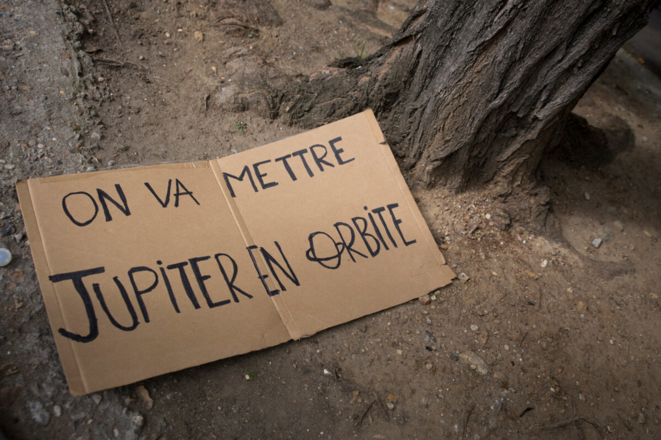 ON VA METTRE
JUPITER EN ORBITE